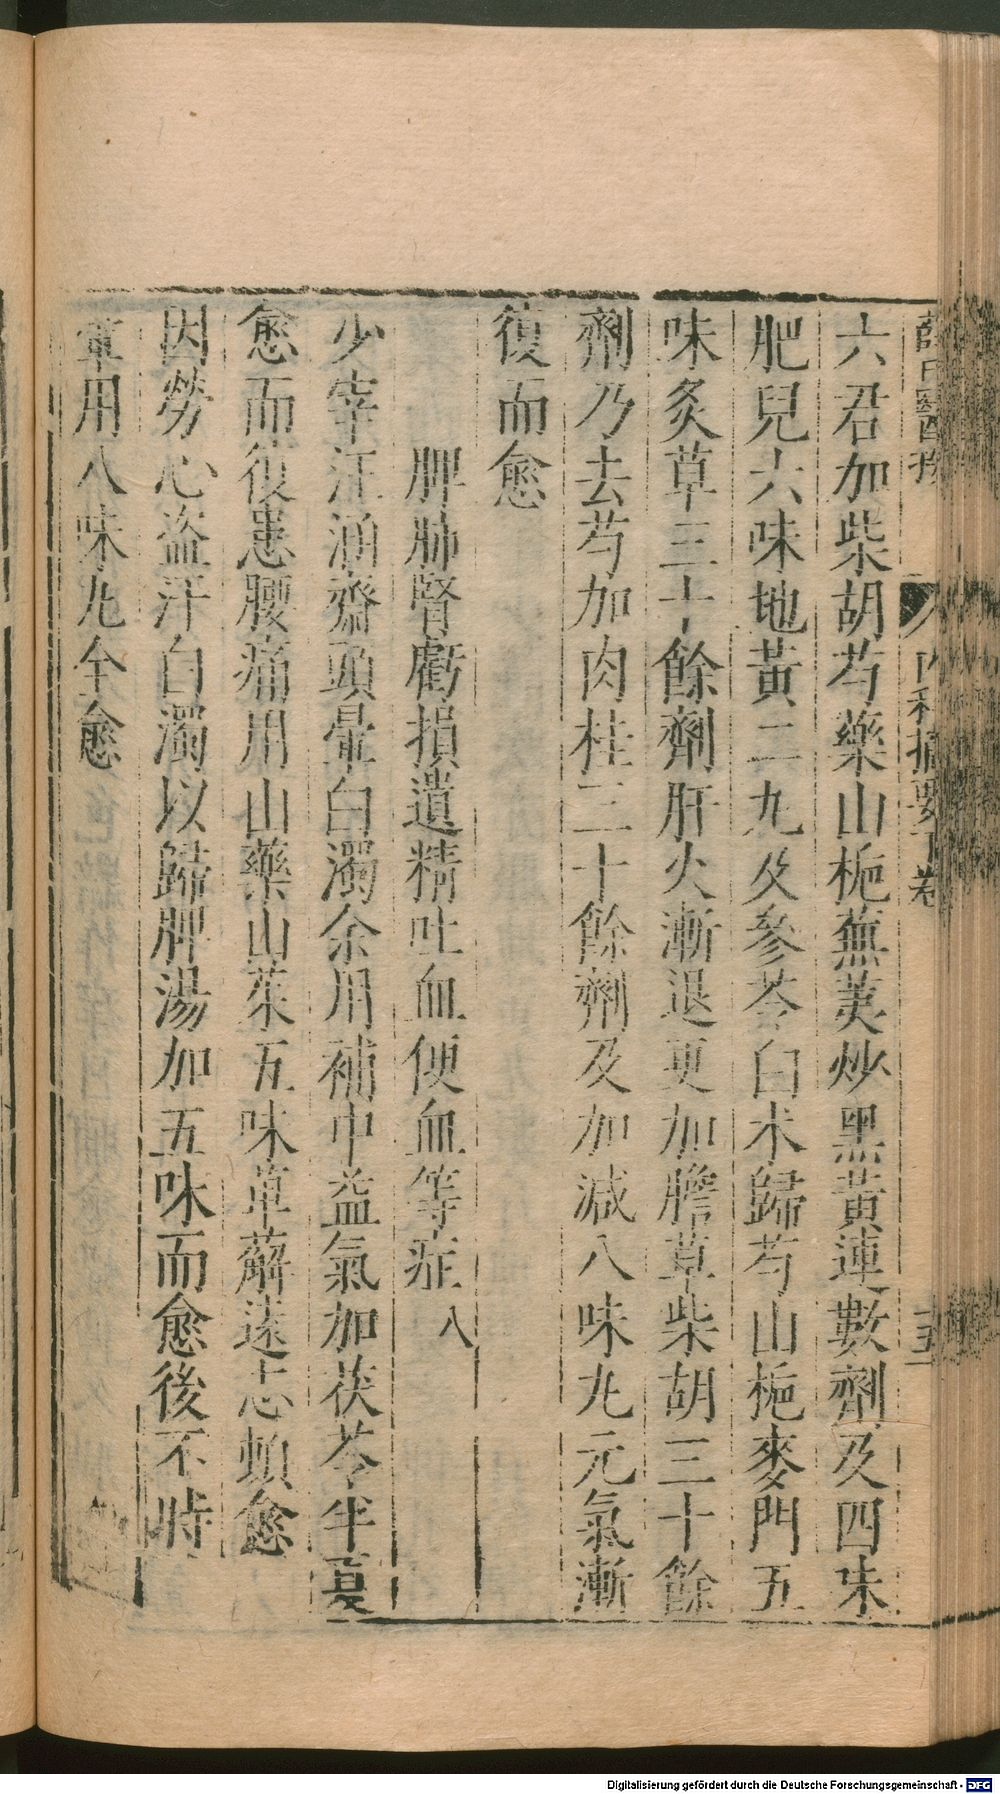 薛氏醫按 內科摘要下卷 十五
六君加柴胡芍藥山梔蕪荑炒黑黃連數劑及四味
肥兒六味地黃二丸及參苓白朮歸芍山梔麥門五
味炙草三十餘劑肝火漸退更加膽草柴胡三十餘
劑乃去芍加肉桂三十餘劑及加減八味丸元氣漸
復而愈
脾肺腎虧損遺精吐血便血等症八
少宰汪涌齋頭暈白濁余用補中益氣加茯苓半夏
愈而復患腰痛用山藥山茱五味萆薢遠志頓愈
因勞心盜汗白濁以歸脾湯加五味而愈後不時
暈用八味丸全愈
Digitalisierung gefördert durch die Deutsche Forschungsgemeinschaft - DFG